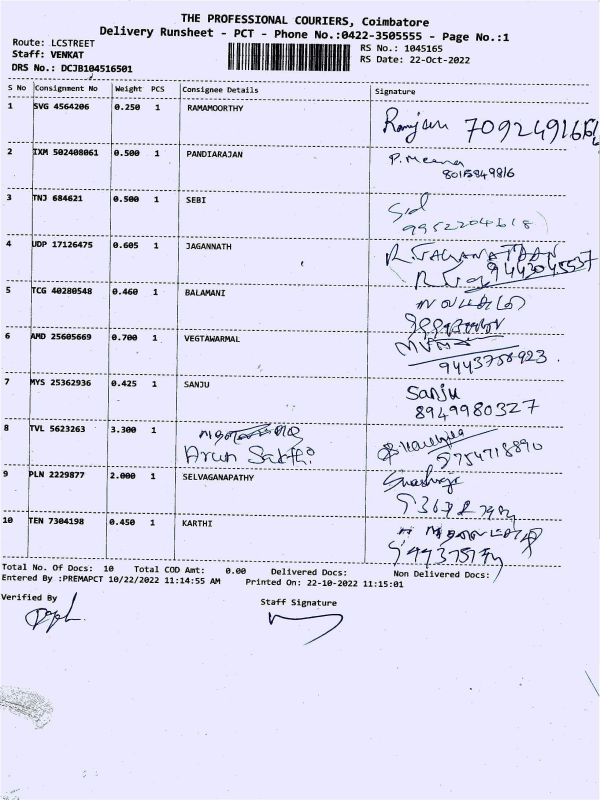 THE PROFESSIONAL COURIERS, Coimbatore
Delivery Runsheet - PCT - Phone No.:0422-3505555 - Page No.:1
Route: LCSTREET
Staff: VENKAT
DRS No.: DCJB104516501
RS No.: 1045165
RS Date: 22-Oct-2022
S No Consignment No Weight PCS Consignee Details Signature
1 SVG 4564206 0.250 1 RAMAMOORTHY
2 IXM 502408061 0.500 1 PANDIARAJAN P. Meena
8015849816
3 TNJ 684621 0.500 1 SEBI
9952204618
4 UDP 17126475 0.605 1 JAGANNATH
9443045537
5 TCG 40280548 0.460 1 BALAMANI
6 AMD 25605669 0.700 1 VEGTAWARMAL
9443756923
7 MYS 25362936 0.425 1 SANJU Sanju
8949980327
8 TVL 5623263 3.300 1 Arun Sakthi
9754718890
9 PLN 2229877 2.000 1 SELVAGANAPATHY
10 TEN 7304198 0.450 1 KARTHI
Total No. Of Docs: 10 Total COD Amt: 0.00 Delivered Docs: Non Delivered Docs:
Entered By :PREMAPCT 10/22/2022 11:14:55 AM Printed On: 22-10-2022 11:15:01
Verified By
Staff Signature